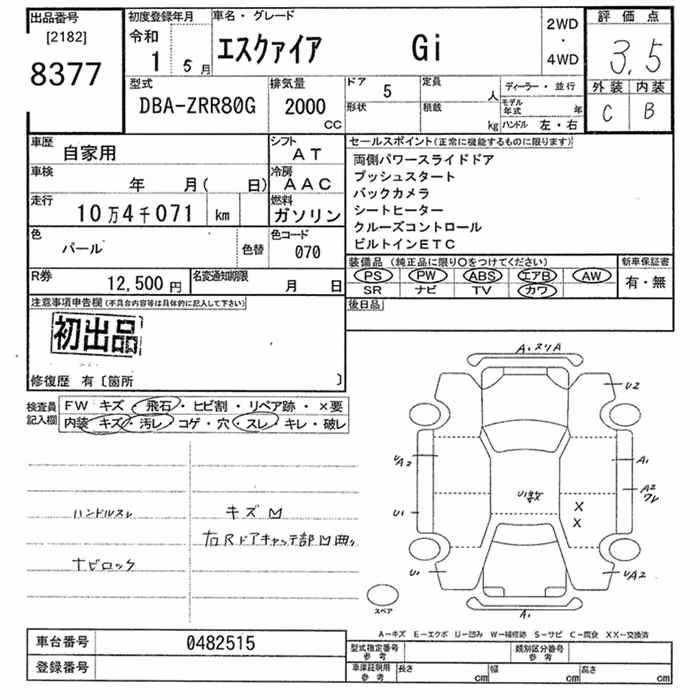 出品番号
[2182]
8377
初度登録年月
令和
1 5月
車名・グレード
エスクァイア Gi
2WD
・
4WD
評価点
3.5
外装 内装
C B
型式
DBA-ZRR80G
排気量
2000
CC
ドア 5
形状
定員 人
積載 kg
ディーラー・並行
モデル年式 年
ハンドル 左・右
車歴
自家用
シフト
AT
車検
年 月( 日)
冷房
AAC
走行
10万4千071 km
燃料
ガソリン
色
パール
色替
色コード
070
R券
12,500円
名変通知期限
月 日
セールスポイント(正常に機能するものに限ります)
両側パワースライドドア
プッシュスタート
バックカメラ
シートヒーター
クルーズコントロール
ビルトインETC
装備品(純正品に限り○をつけてください)
PS PW ABS エアB AW
SR ナビ TV カワ
新車保証書
有・無
後日品
注意事項申告欄(不具合内容等は具体的に記入して下さい)
初出品
修復歴 有〔箇所 〕
検査員記入欄
FW キズ・飛石・ヒビ割・リペア跡・×要
内装 キズ・汚レ・コゲ・穴・スレ・キレ・破レ
ハンドルスレ
ナビロック
キズ凹
右Rドアキャッチ部凹曲り
A1 スリA
U2
UA2
A1
A2
ワレ
U1
X
X
U1
UA2
A1
スペア
A―キズ E―エクボ U―凹み W―補修跡 S―サビ C―腐食 XX―交換済
車台番号
0482515
登録番号
型式指定番号
参考
類別区分番号
参考
車庫証明用
参考
長さ cm
幅 cm
高さ cm